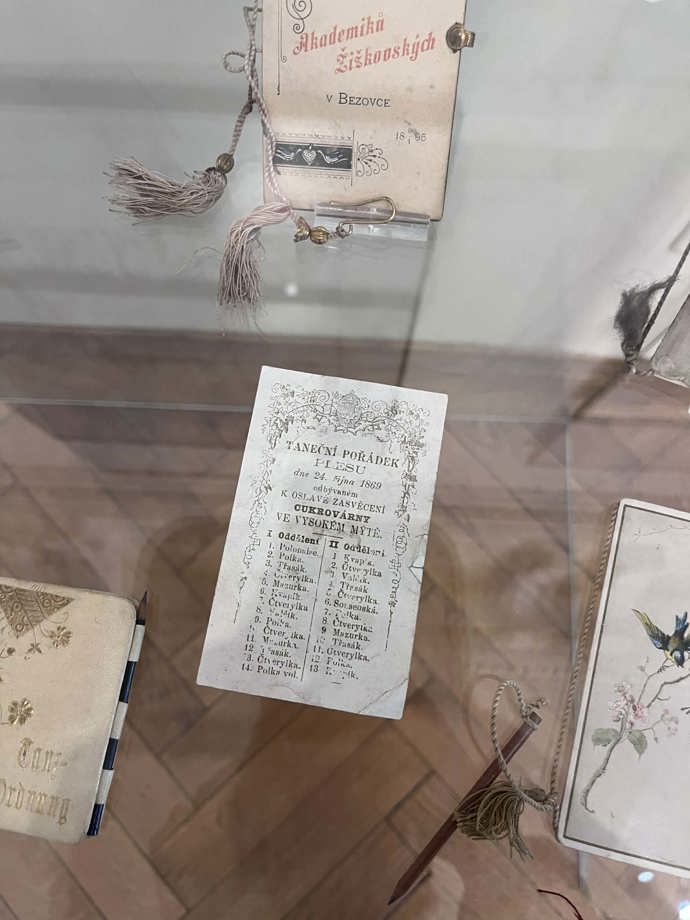 Akademiků
Žižkovských
v Bezovce
18 96
TANEČNÍ POŘÁDEK
PLESU
dne 24. října 1869
odbývaném
K OSLAVĚ ZASVĚCENÍ
CUKROVÁRNY
VE VYSOKÉM MÝTĚ.
I Oddělení
1. Polonaise.
2. Polka.
3. Třasák.
4. Čtverylka.
5. Mazurka.
6. Kvapík.
7. Čtverylka
8. Valčík.
9. Polka.
10. Čtverylka.
11. Mazurka.
12. Třasák.
13. Čtverylka.
14. Polka vol.
II Oddělení.
1. Kvapík.
2. Čtverylka
3. Valčík.
4. Třasák
5. Čtverylka.
6.
7. Polka.
8. Čtverylka.
9. Mazurka.
10. Třasák.
11. Čtverylka.
12. Polka.
13. Kvapík.
Tanz-
Ordnung